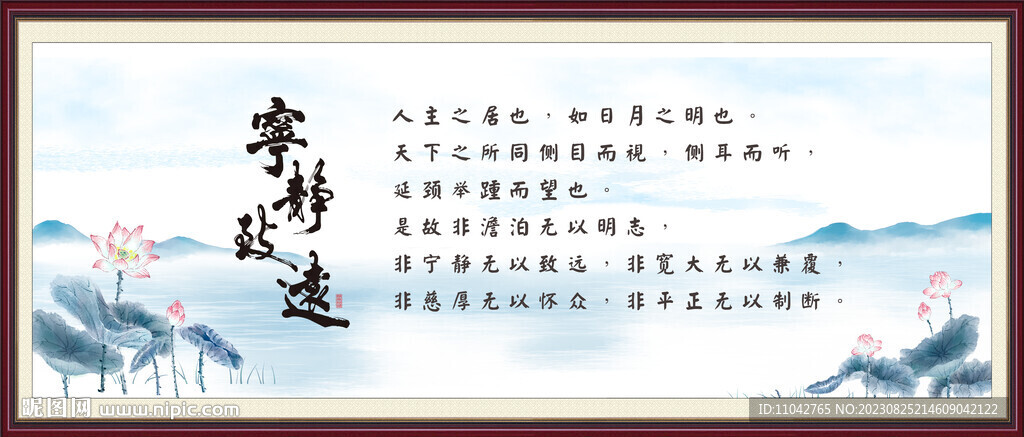 寧靜致遠
人主之居也，如日月之明也。
天下之所同侧目而視，侧耳而听，
延颈举踵而望也。
是故非澹泊无以明志，
非宁静无以致远，非宽大无以兼覆，
非慈厚无以怀众，非平正无以制断。
昵图网 www.nipic.com
ID:11042765 NO:20230825214609042122